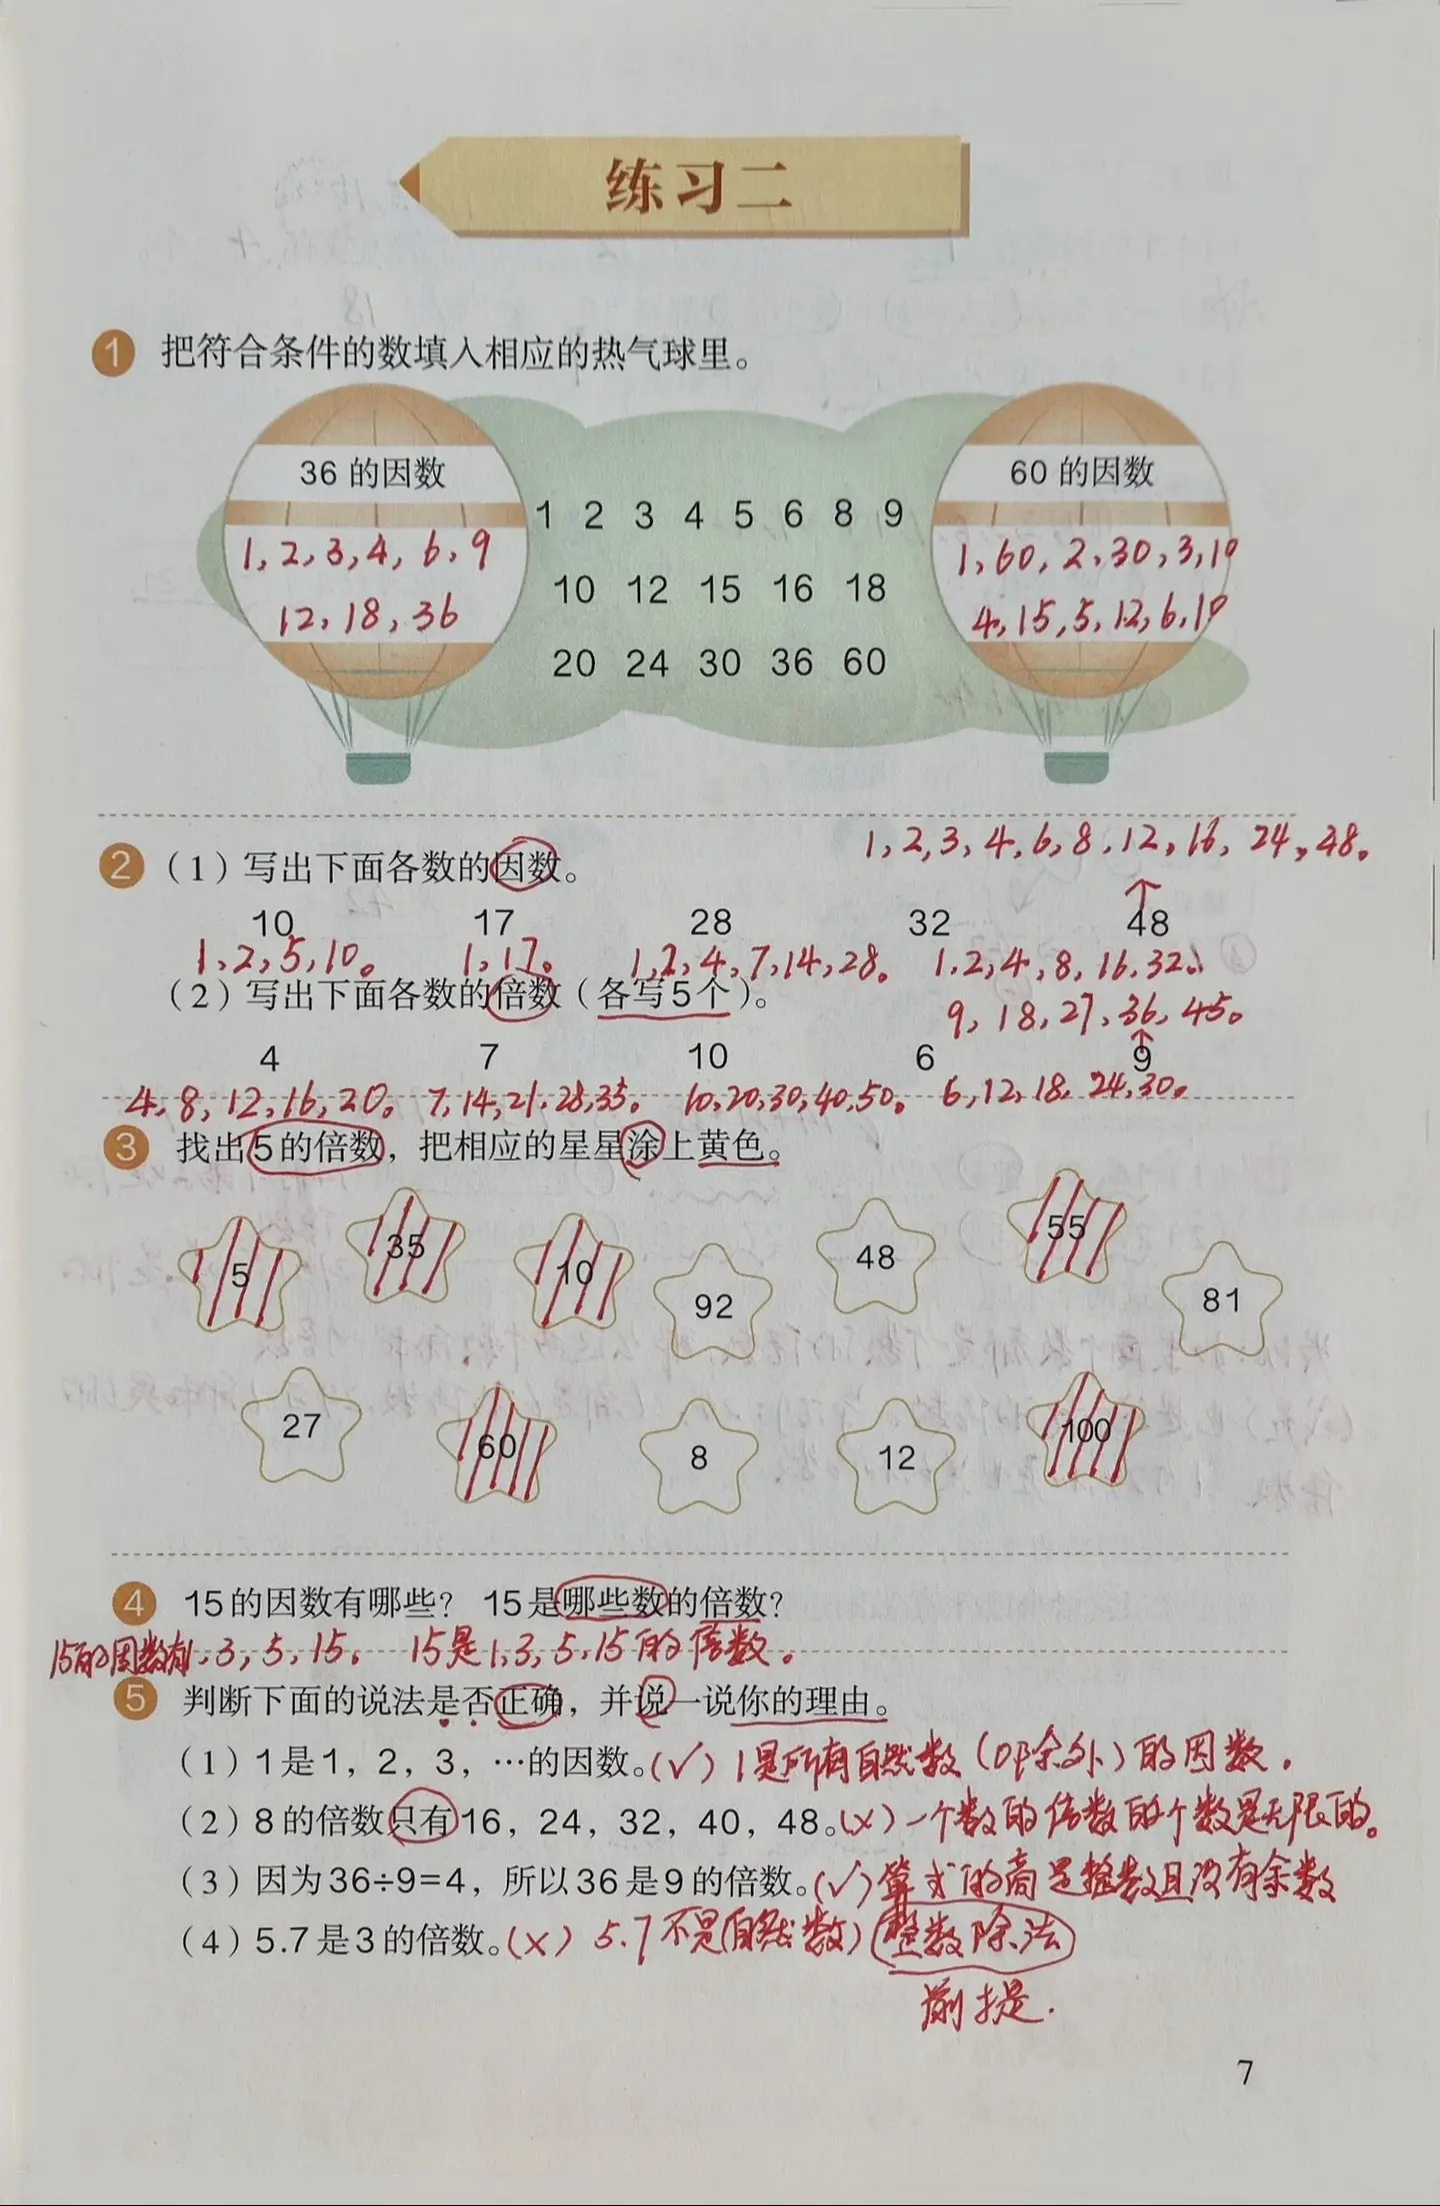 练习二
1 把符合条件的数填入相应的热气球里。
36 的因数
1,2,3,4,6,9
12,18,36
1 2 3 4 5 6 8 9
10 12 15 16 18
20 24 30 36 60
60 的因数
1,60,2,30,3,10
4,15,5,12,6,10
1,2,3,4,6,8,12,16,24,48。
2 （1）写出下面各数的因数。
10 17 28 32 48
1,2,5,10。 1,17。 1,2,4,7,14,28。 1,2,4,8,16,32。
（2）写出下面各数的倍数（各写5个）。
9,18,27,36,45。
4 7 10 6 9
4,8,12,16,20。 7,14,21,28,35。 10,20,30,40,50。 6,12,18,24,30。
3 找出5的倍数，把相应的星星涂上黄色。
5 35 10 92 48 55 81
27 60 8 12 100
4 15的因数有哪些？ 15是哪些数的倍数？
15的因数有1,3,5,15。 15是1,3,5,15的倍数。
5 判断下面的说法是否正确，并说一说你的理由。
（1）1是1，2，3，…的因数。（✓）1是所有自然数（0除外）的因数.
（2）8的倍数只有16，24，32，40，48。（×）一个数的倍数的个数是无限的。
（3）因为36÷9=4，所以36是9的倍数。（✓）算式的商是整数且没有余数
（4）5.7是3的倍数。（×）5.7不是(自然数) 整数除法
前提.
7